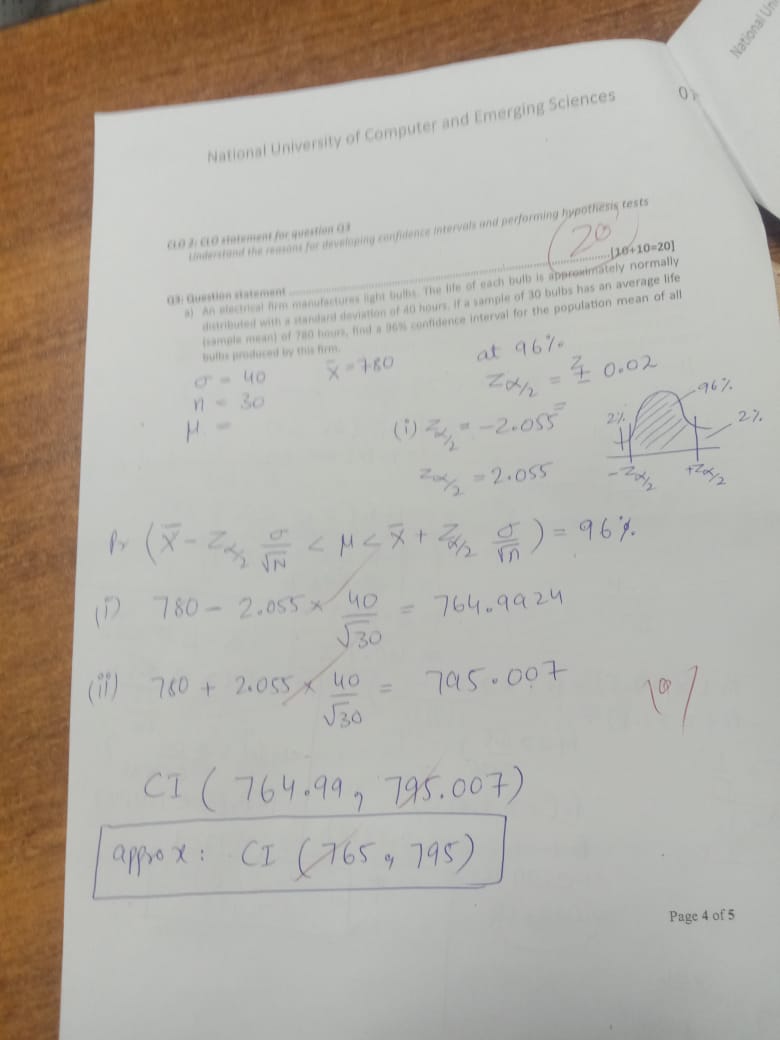 National Uni
National University of Computer and Emerging Sciences
CLO 2: CLO statement for question Q3
Understand the reasons for developing confidence intervals and performing hypothesis tests
20
Q3: Question statement ........................................................................[10+10=20]
a) An electrical firm manufactures light bulbs. The life of each bulb is approximately normally
distributed with a standard deviation of 40 hours. If a sample of 30 bulbs has an average life
(sample mean) of 780 hours, find a 96% confidence interval for the population mean of all
bulbs produced by this firm.
σ = 40
x̄ = 780
n = 30
μ =
at 96%
Zα/2 = ± 0.02
(i) Zα/2 = -2.055
Zα/2 = 2.055
96%
2%
2%
-Zα/2 +Zα/2
Pr (x̄ - Zα/2 σ/√N < μ < x̄ + Zα/2 σ/√n) = 96%
(i) 780 - 2.055 × 40/√30 = 764.9924
(ii) 780 + 2.055 × 40/√30 = 795.007
10
CI (764.99, 795.007)
approx: CI (765, 795)
Page 4 of 5